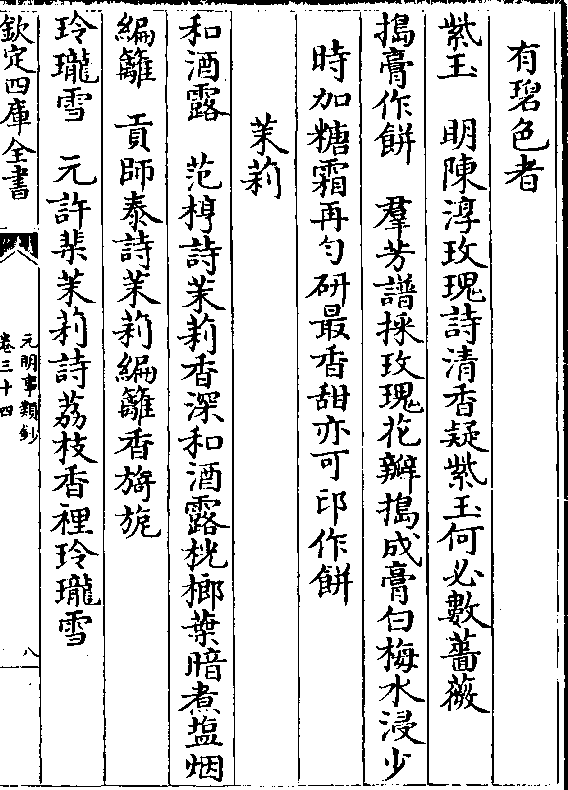 有碧色者
紫玉　明陳淳玫瑰詩清香疑紫玉何必數薔薇
搗膏作餅　羣芳譜採玫瑰花瓣搗成膏白梅水浸少
時加糖霜再勻研最香甜亦可印作餅
茉莉
和酒露　范梈詩茉莉香深和酒露桄榔葉暗煮塩烟
編籬　貢師泰詩茉莉編籬香旖旎
玲瓏雪　元許棐茉莉詩荔枝香裡玲瓏雪
欽定四庫全書
元明事類鈔
卷三十四
八